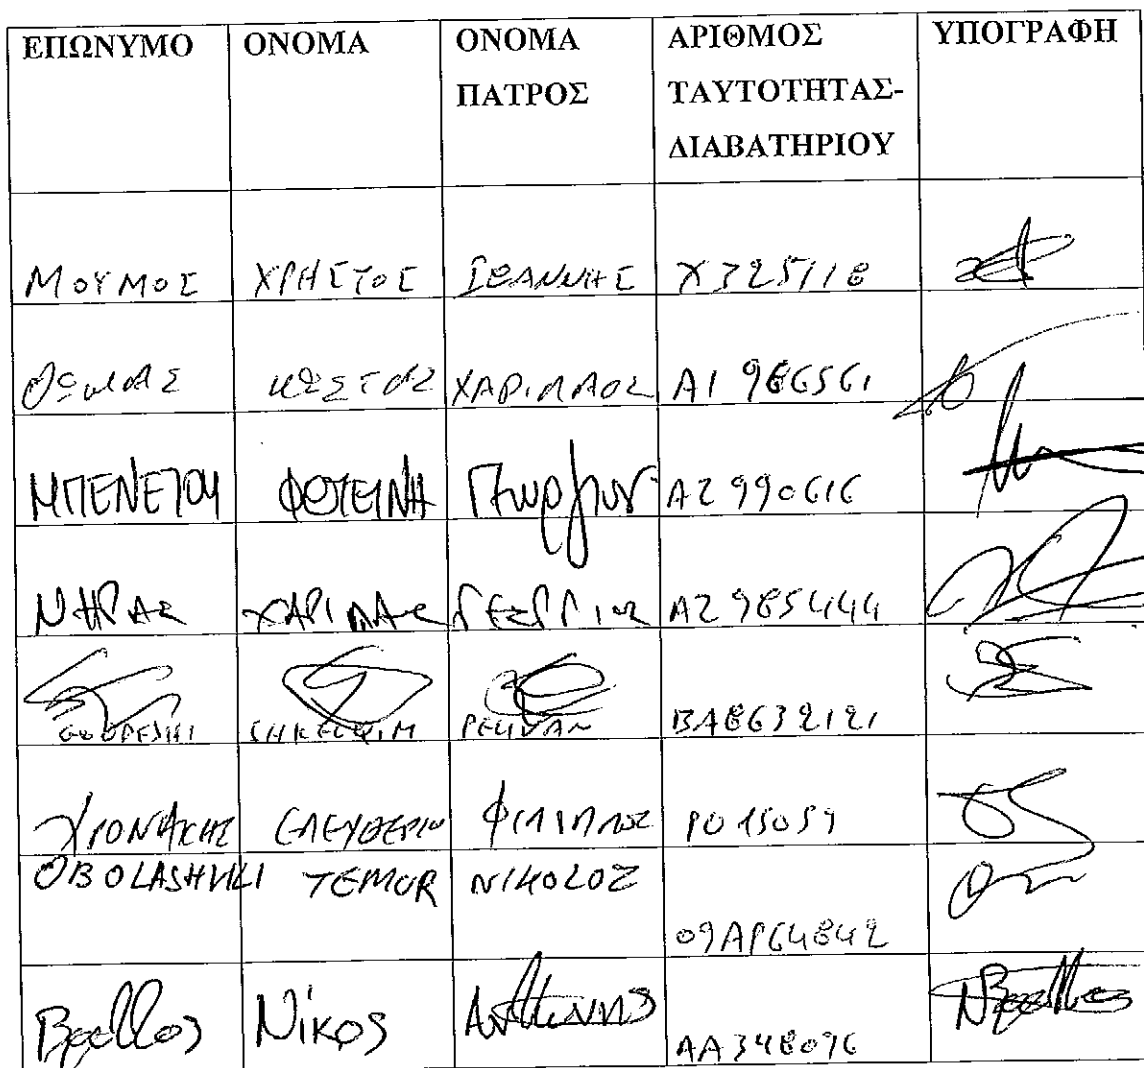 ΕΠΩΝΥΜΟ ΟΝΟΜΑ ΟΝΟΜΑ ΠΑΤΡΟΣ ΑΡΙΘΜΟΣ ΤΑΥΤΟΤΗΤΑΣ-ΔΙΑΒΑΤΗΡΙΟΥ ΥΠΟΓΡΑΦΗ
ΜΟΥΜΟΣ ΧΡΗΣΤΟΣ ΙΩΑΝΝΗΣ Χ325118
ΘΩΜΑΣ ΚΩΣΤΑΣ ΧΑΡΙΛΑΟΣ ΑΙ 986561
ΜΠΕΝΕΤΟΥ ΦΩΤΕΙΝΗ Γεωργιος ΑΖ 990616
ΧΑΡΙΛΑΟΣ ΓΕΩΡΓΙΟΣ ΑΖ 985444
PELIVAN BA8632121
ΧΙΟΝΑΚΗΣ ΕΛΕΥΘΕΡΙΟΣ ΦΙΛΙΠΠΟΣ
OBOLASHVILI TEMUR NIKOLOZ
09AP64842
Νίκος
AA348096